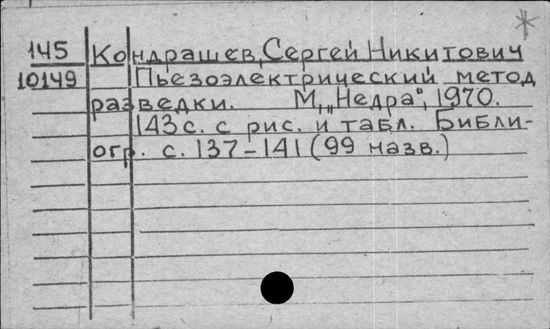 145 Кондрашев, Сергей Никитович
10149 Пьезоэлектрический метод
разведки. М., „Недра", 1970.
143 с. с рис. и табл. Библи-
огр. с. 137-141 (99 назв.)